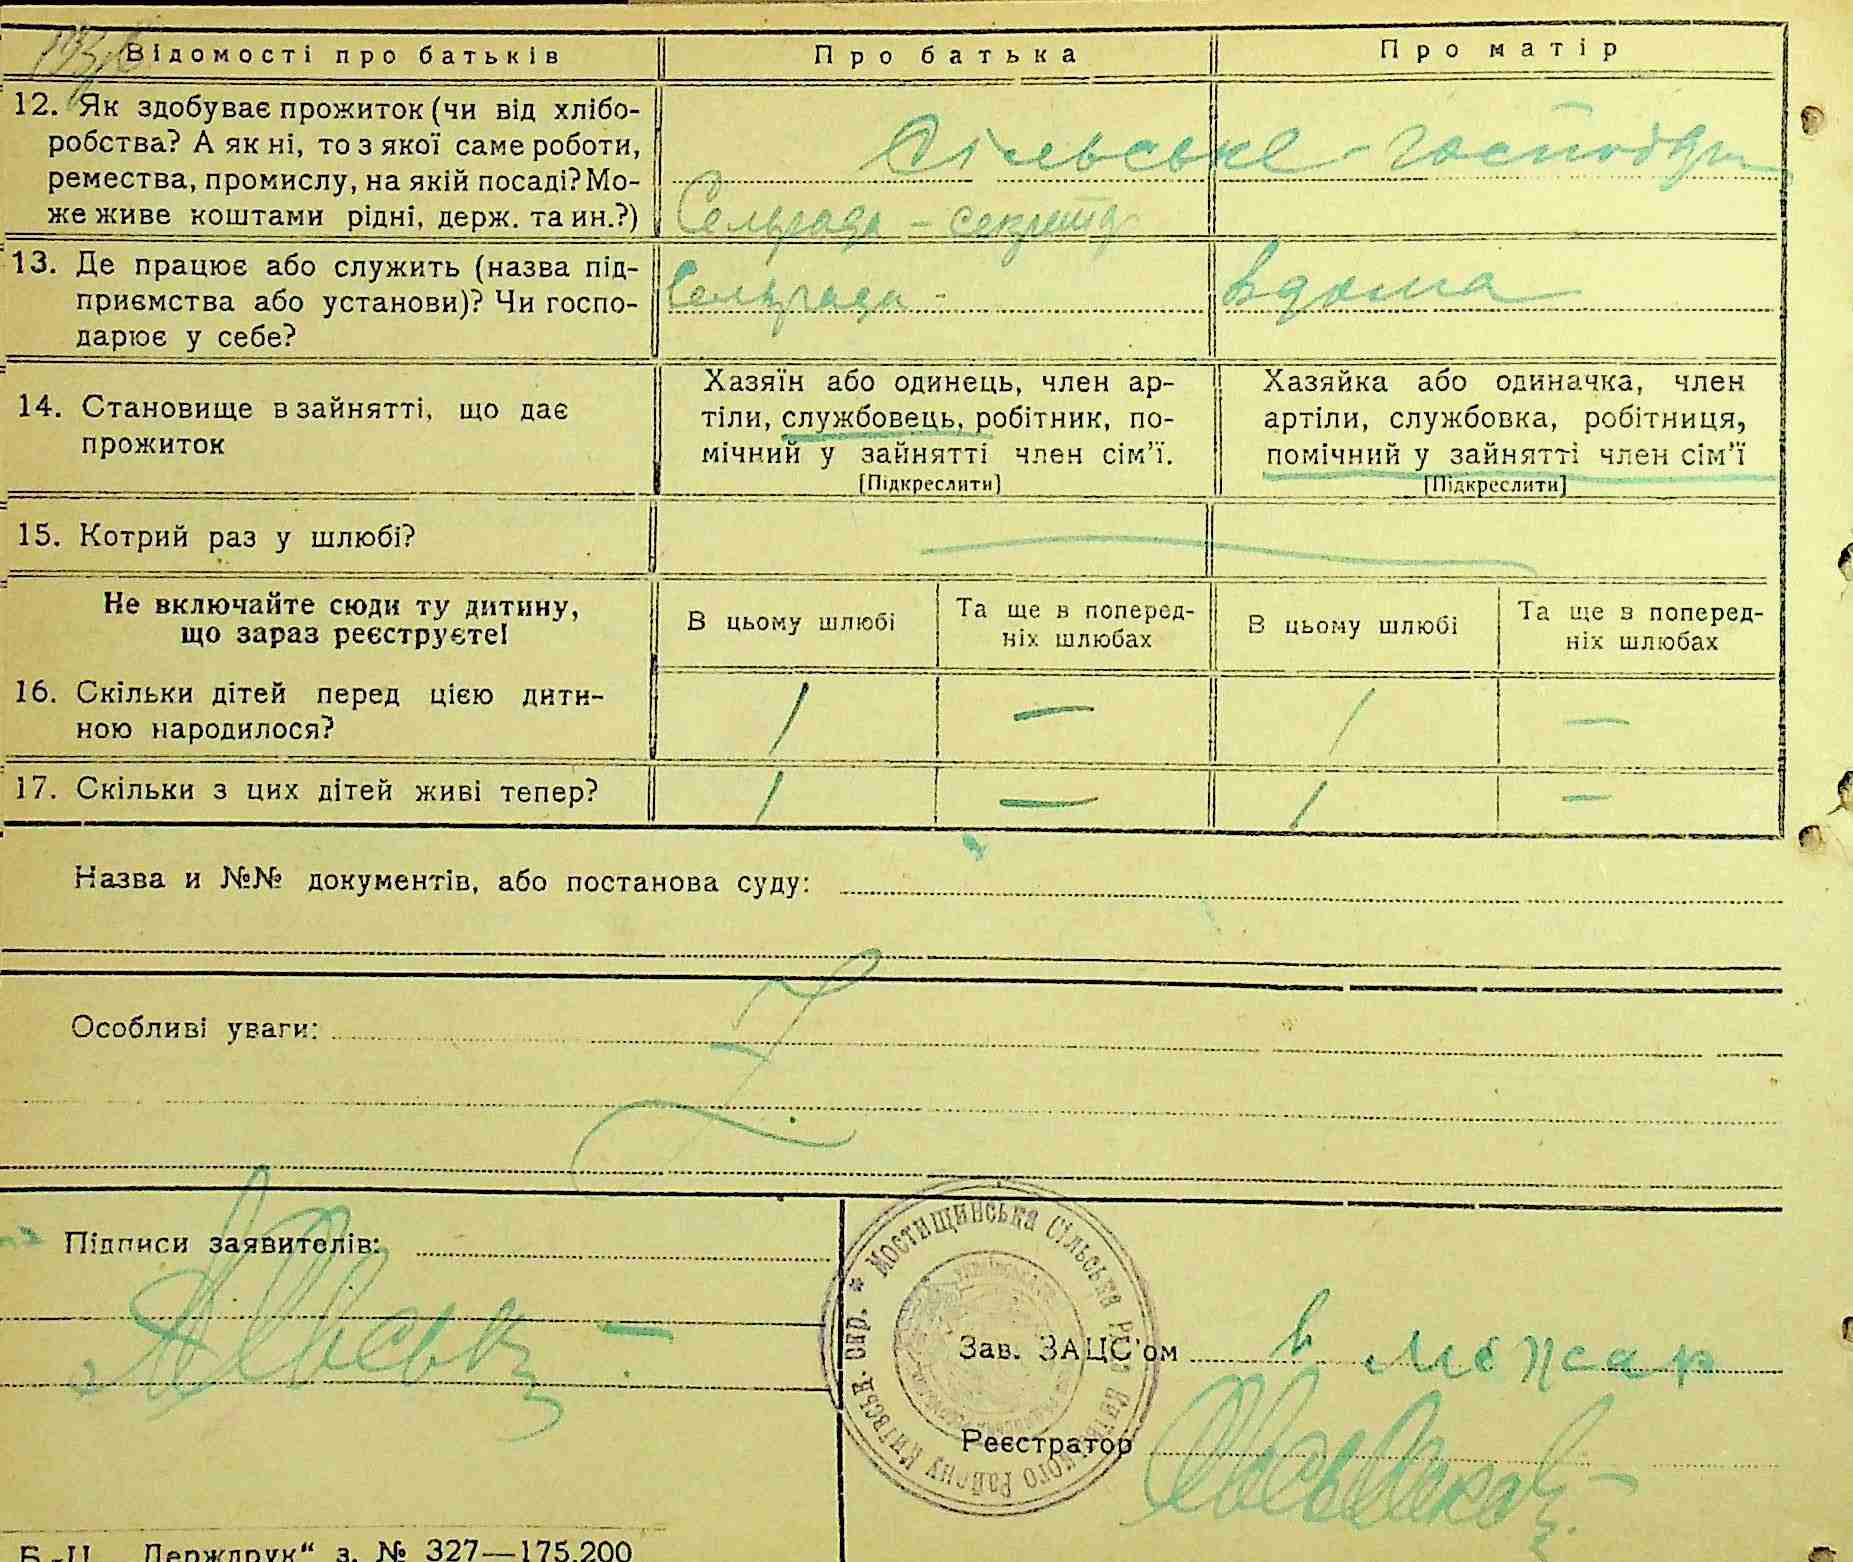 Відомості про батьків
Про батька
Про матір
12. Як здобуває прожиток (чи від хлібо-
робства? А як ні, то з якої саме роботи,
ремества, промислу, на якій посаді? Мо-
же живе коштами рідні, держ. та ин.?)
Сільське господар
Сельрада - секрет
13. Де працює або служить (назва під-
приємства або установи)? Чи госпо-
дарює у себе?
Сельрада -
вдома
14. Становище в зайнятті, що дає
прожиток
Хазяїн або одинець, член ар-
тіли, службовець, робітник, по-
мічний у зайнятті член сім'ї.
[Підкреслити]
Хазяйка або одиначка, член
артіли, службовка, робітниця,
помічний у зайнятті член сім'ї
[Підкреслити]
15. Котрий раз у шлюбі?
—
Не включайте сюди ту дитину,
що зараз реєструєте!
В цьому шлюбі
Та ще в поперед-
ніх шлюбах
В цьому шлюбі
Та ще в поперед-
ніх шлюбах
16. Скільки дітей перед цією дити-
ною народилося?
1 — 1 —
17. Скільки з цих дітей живі тепер?
1 — 1 —
Назва и №№ документів, або постанова суду:
Особливі уваги:
Підписи заявителів:
* Мостищинська Сільська Рада
Району Київськ. окр.
Зав. ЗАЦС'ом
Реєстратор
Б.-Ц. „Держдрук“ з. № 327—175.200